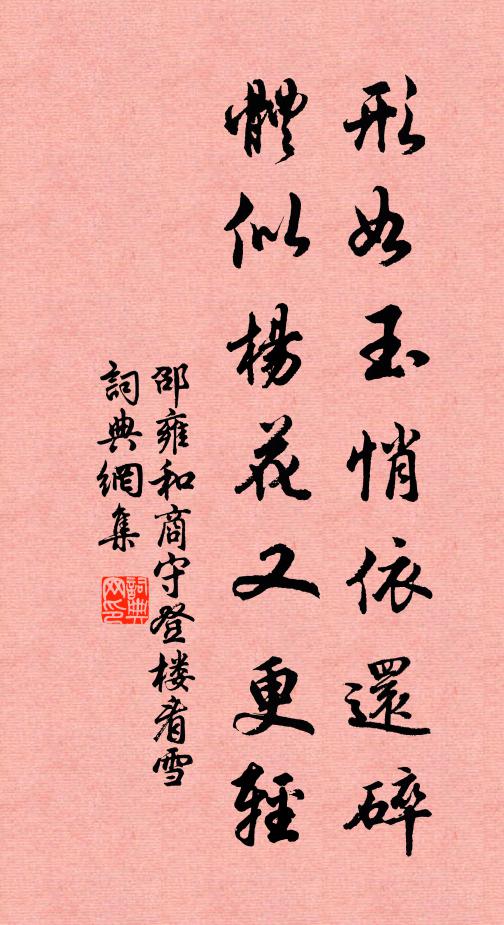 形如玉悄依還碎
體似楊花又更輕
邵雍和商守登楼看雪
詞典網集
詞典网印